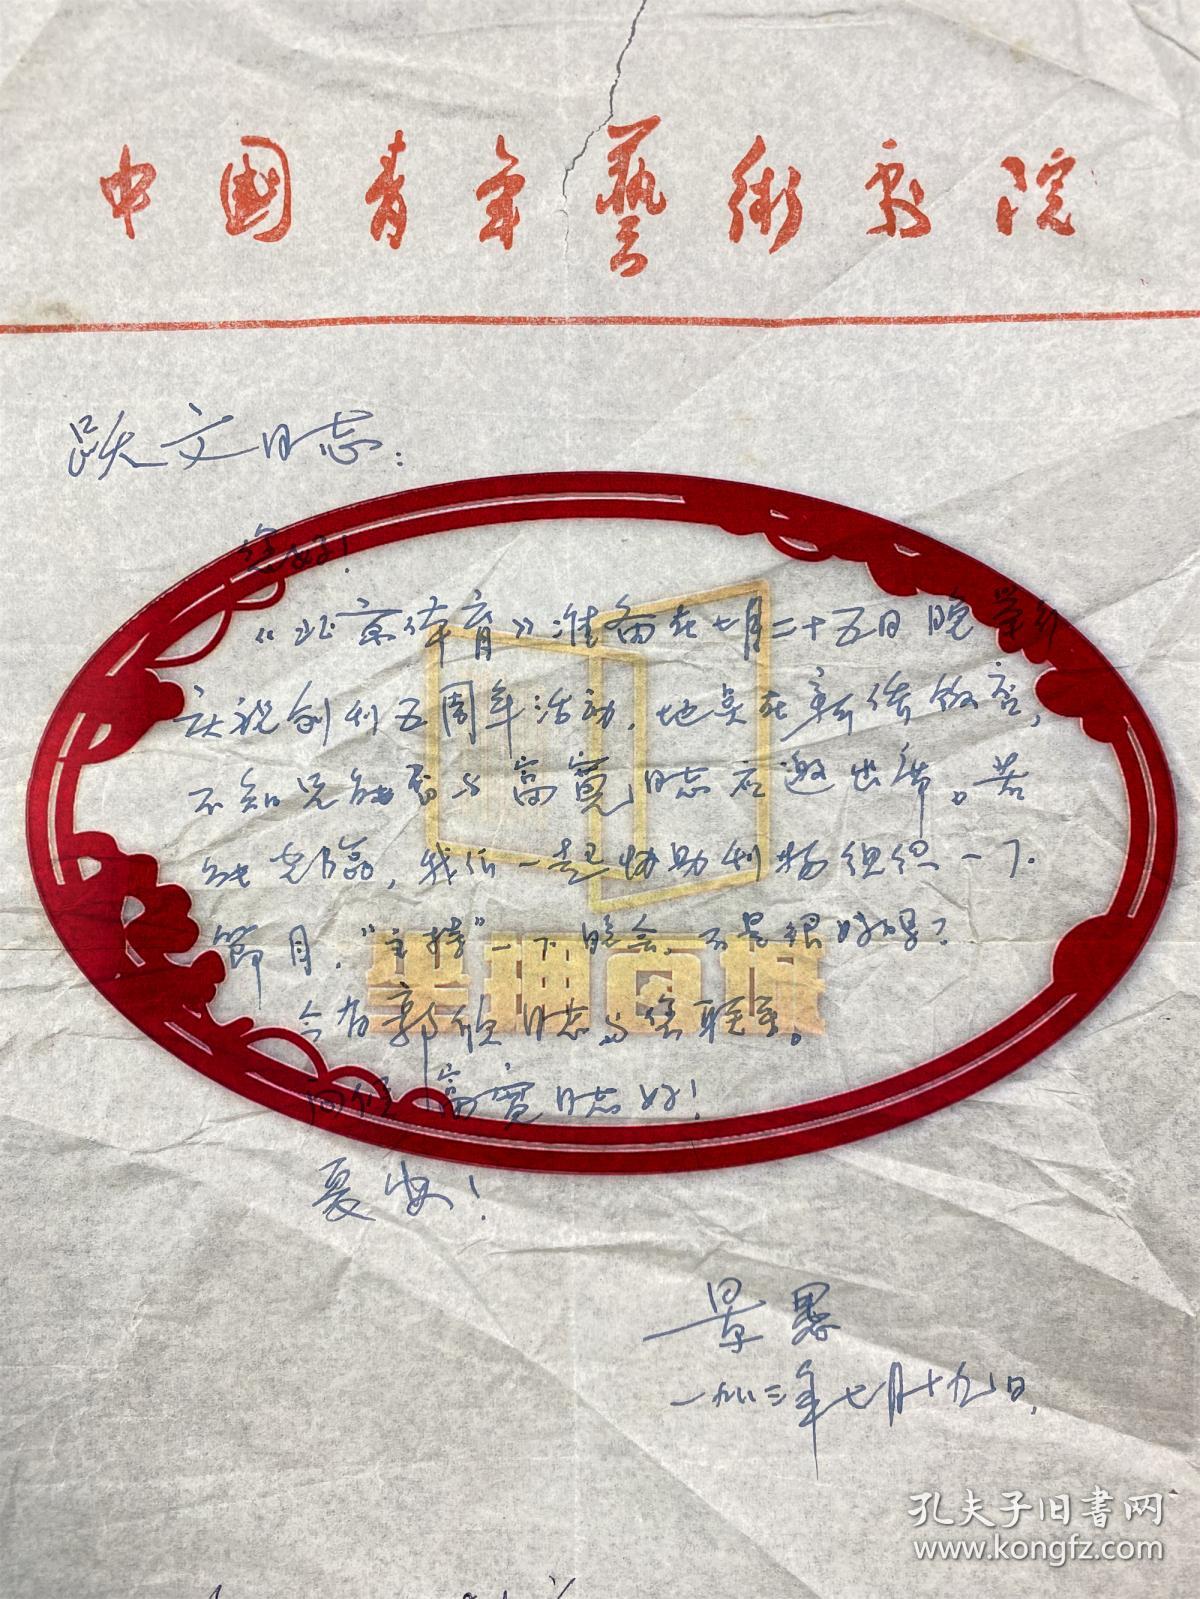 中国青年藝術剧院
跃文同志：
您好！
《北京体育》准备在七月二十五日晚举行
庆祝创刊五周年活动，地点在新侨饭店，
不知兄能否与高宽同志应邀出席。若
能光临，我们一起协助刊物组织一下
節目，“主持”一下晚会，不是很好吗？
今有郭欣同志与您联系。
问候高宽同志好！
夏安！
景愚
一九八三年七月十九日
孔夫子旧书网
www.kongfz.com